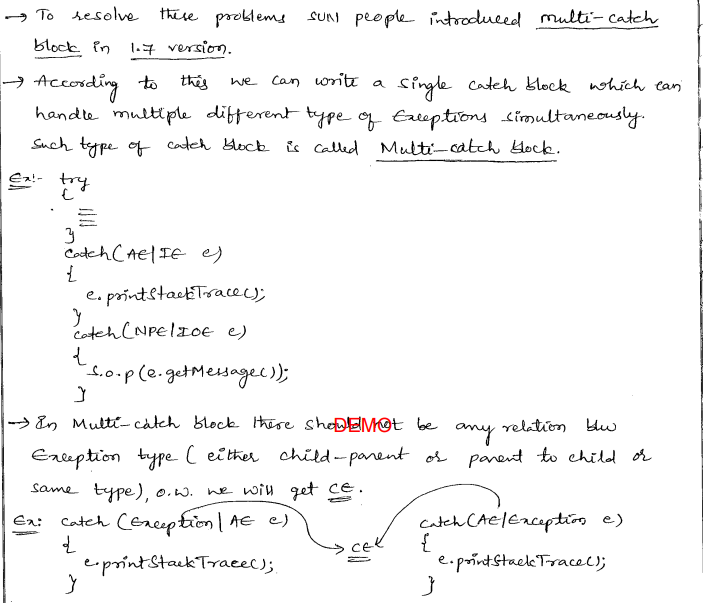 → To resolve these problems SUN people introduced multi-catch
block in 1.7 version.
→ According to this we can write a single catch block which can
handle multiple different type of Exceptions simultaneously.
Such type of catch block is called Multi-catch block.
Ex:- try
{
}
catch(AE|IE e)
{
e.printStackTrace();
}
catch(NPE|IOE e)
{
S.o.p(e.getMessage());
}
→ In Multi-catch block there should not be any relation b/w
DEMO
Exception type (either child-parent or parent to child or
same type), o.w. we will get CE.
Ex: catch (Exception|AE e) catch(AE|Exception e)
{ → CE {
e.printStackTrace(); e.printStackTrace();
} }